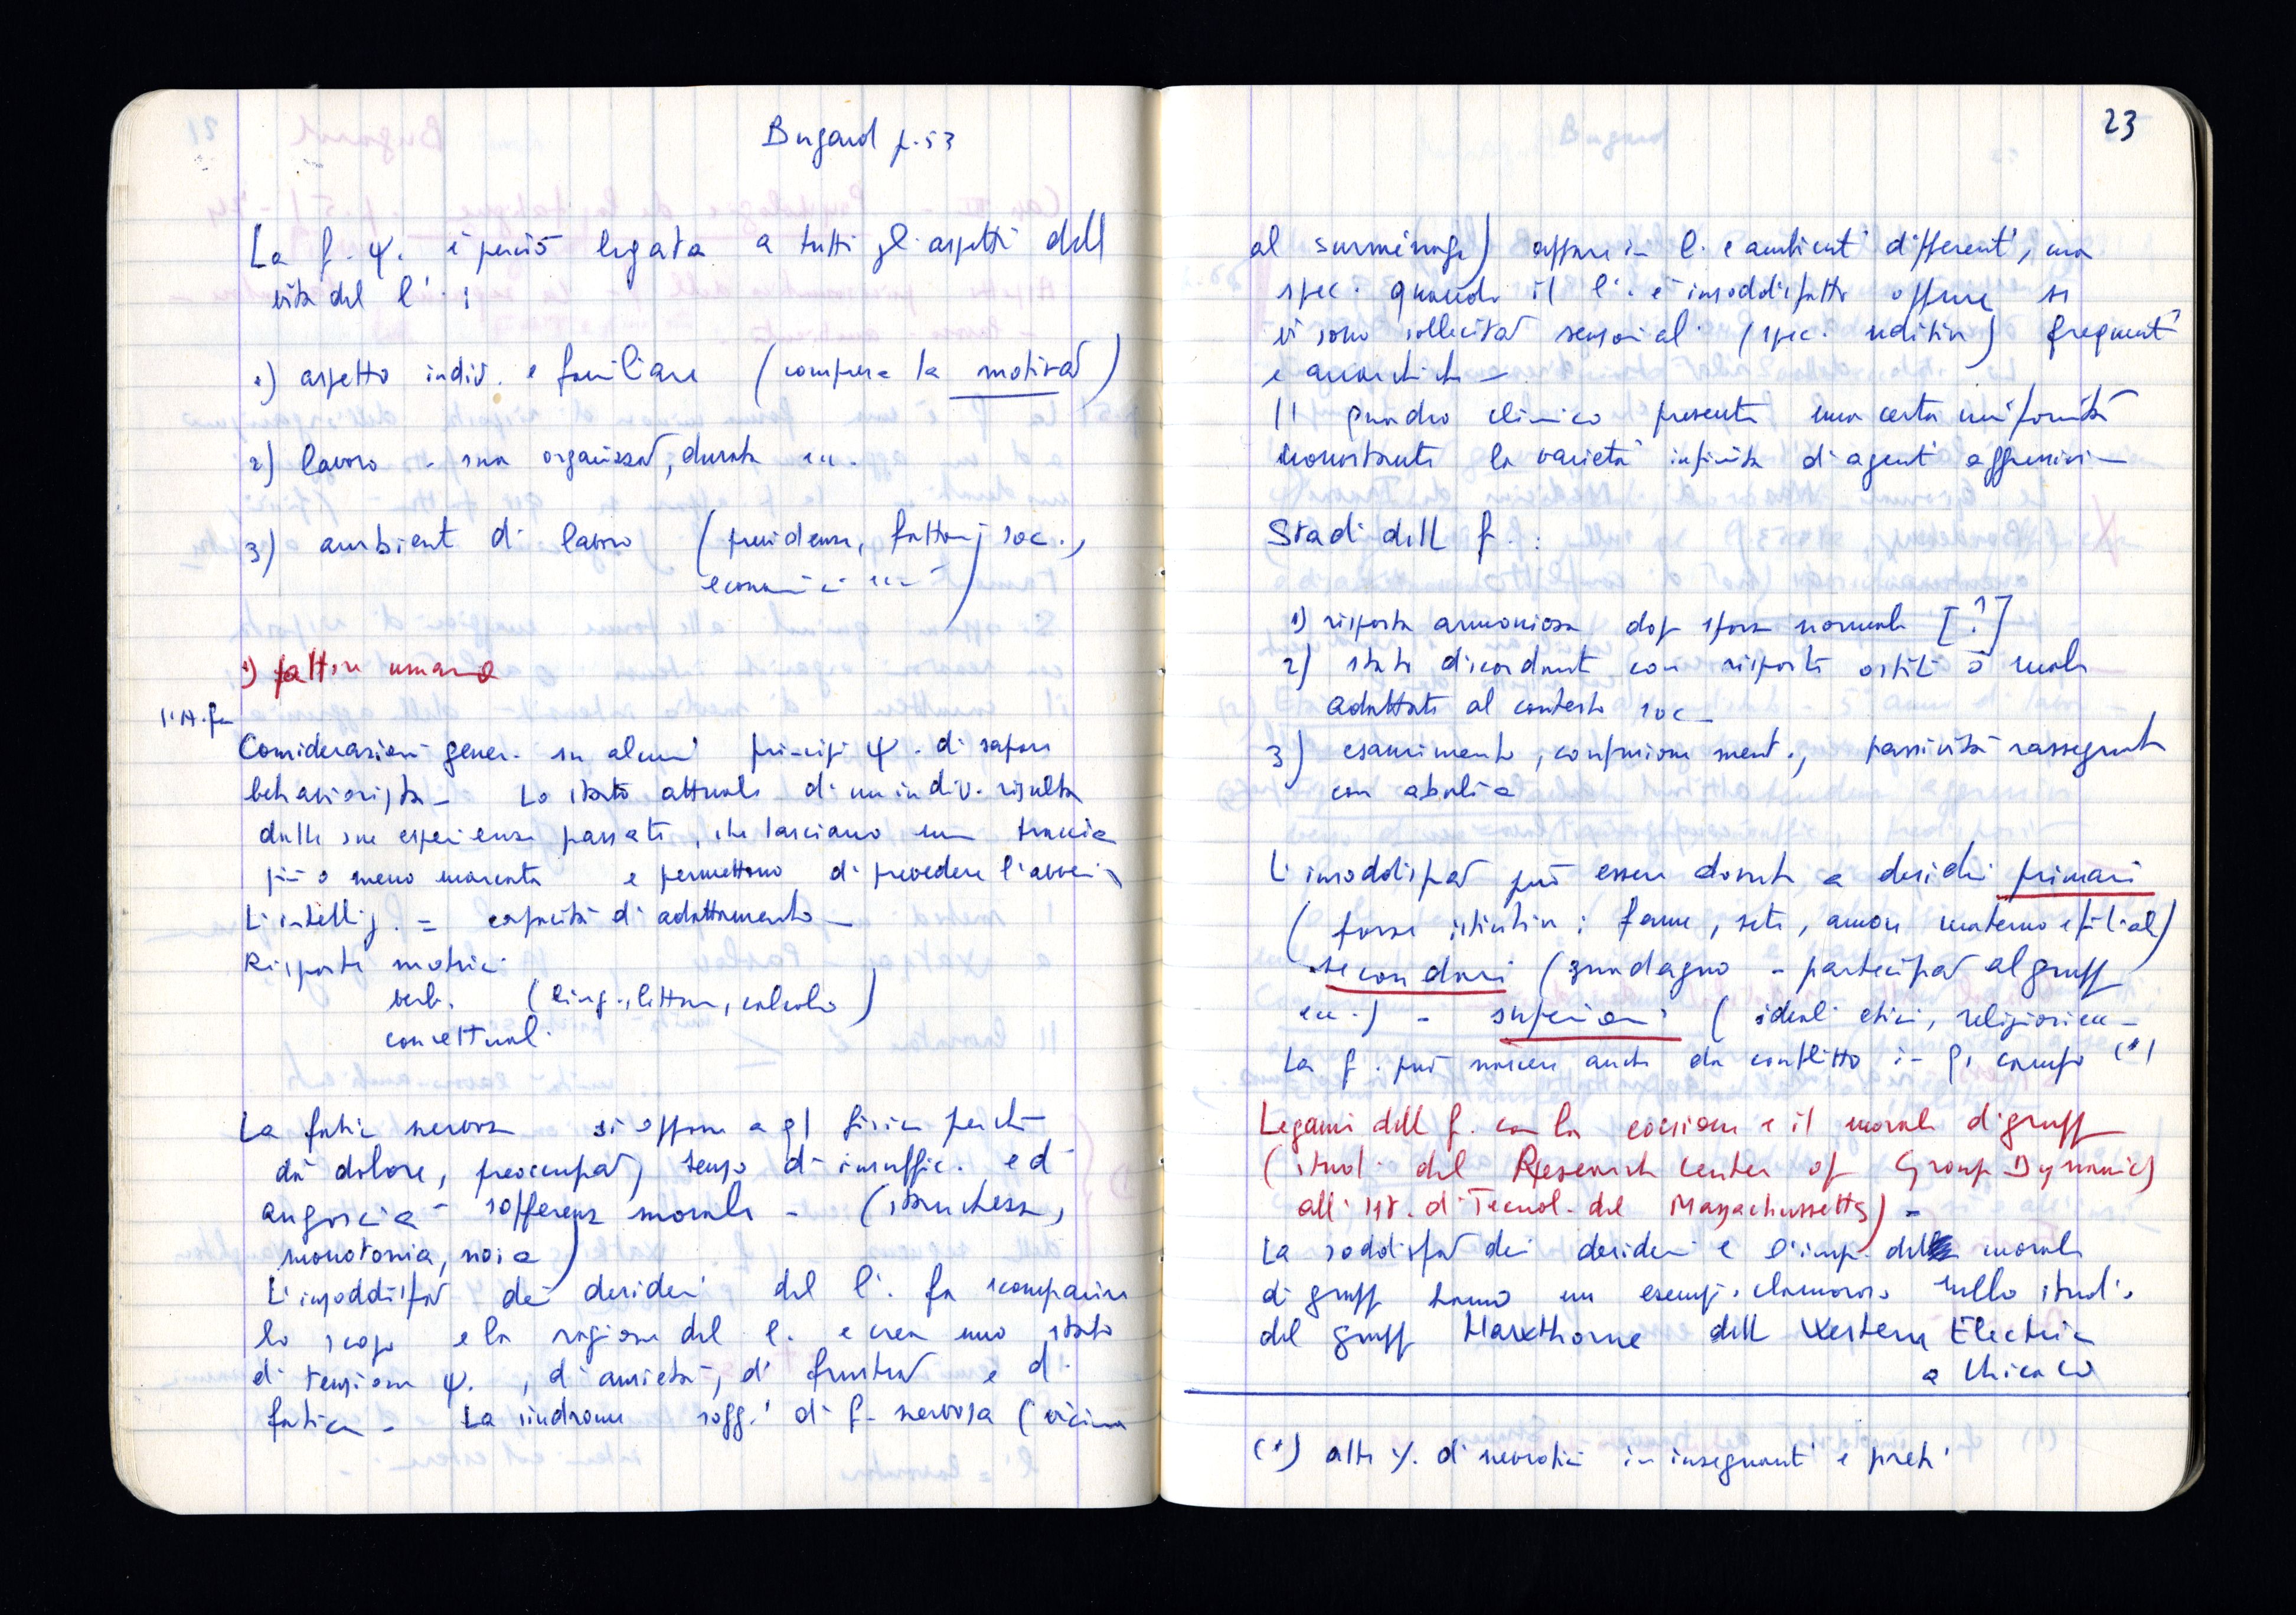 Bugard p. 53
La f. ψ. è perciò legata a tutti gli aspetti dell
vita del l'. :
1) aspetto indiv. e familiare (compresa la motivaz)
2) lavoro - sua organizzaz, durata ecc.
3) ambient di lavoro (previdenza, fattori soc.,
economici ecc)
1) fattore umano
l'A. fa
Considerazioni gener. su alcuni principi ψ. di sapore
behaviorista - Lo stato attuale di un indiv. risulta
dalle sue esperienze passate, che lasciano una traccia
più o meno marcata e permettono di prevedere l'avven
L'intellig. = capacità di adattamento -
Risposte motrici
verb. (ling., lettura, calcolo)
concettuali
La fatica nervosa si oppone a ql fisica perchè
dà dolore, preoccupaz, senso di insuffic. e d
angoscia - sofferenza morale - (stanchezza,
monotonia, noia)
L'insoddisfaz dei desideri del l'. fa scomparire
lo scopo e la ragione del l. e crea uno stato
di tensione ψ., d'ansietà, d' frustraz e d.
fatica - La sindrome sogg.' di f. nervosa (vicina
23
al surménage) appare in l. e ambienti differenti, ma
spec. quando il l'. è insoddisfatto oppure se
vi sono sollecitaz sensoriali (spec. uditive) frequenti
e
Il quadro clinico presenta una certa uniformità
nonostante la varietà infinita d'agenti aggressivi -
Stadi dell f. :
1) risposta armoniosa dopo sforzo normale [?]
2) stato discordante con risposte ostili o male
adattate al contesto soc -
3) esaurimento, confusione ment., passività rassegnata
con abulia
L'insoddisfaz può essere dovuta a desideri primari
(forse istintivi : fame, sete, amore materno e filiale)
secondari (guadagno - partecipaz al gruppo
ecc.) - superiori (ideali etici, religiosi ecc -
La f. può nascere anche da conflitto in qs campo (*)
Legami dell f. con la coesione e il morale d gruppo
(studi del Research Center of Group Dynamics
all' Ist. d Tecnol. del Massachussetts) -
La soddisfaz dei desideri e l'imp. del morale
di gruppo hanno un esempio clamoroso nello studio
del gruppo Hawthorne dell Western Electric
a Chicaco
(*) alta %. d nevrotici in insegnanti e preti